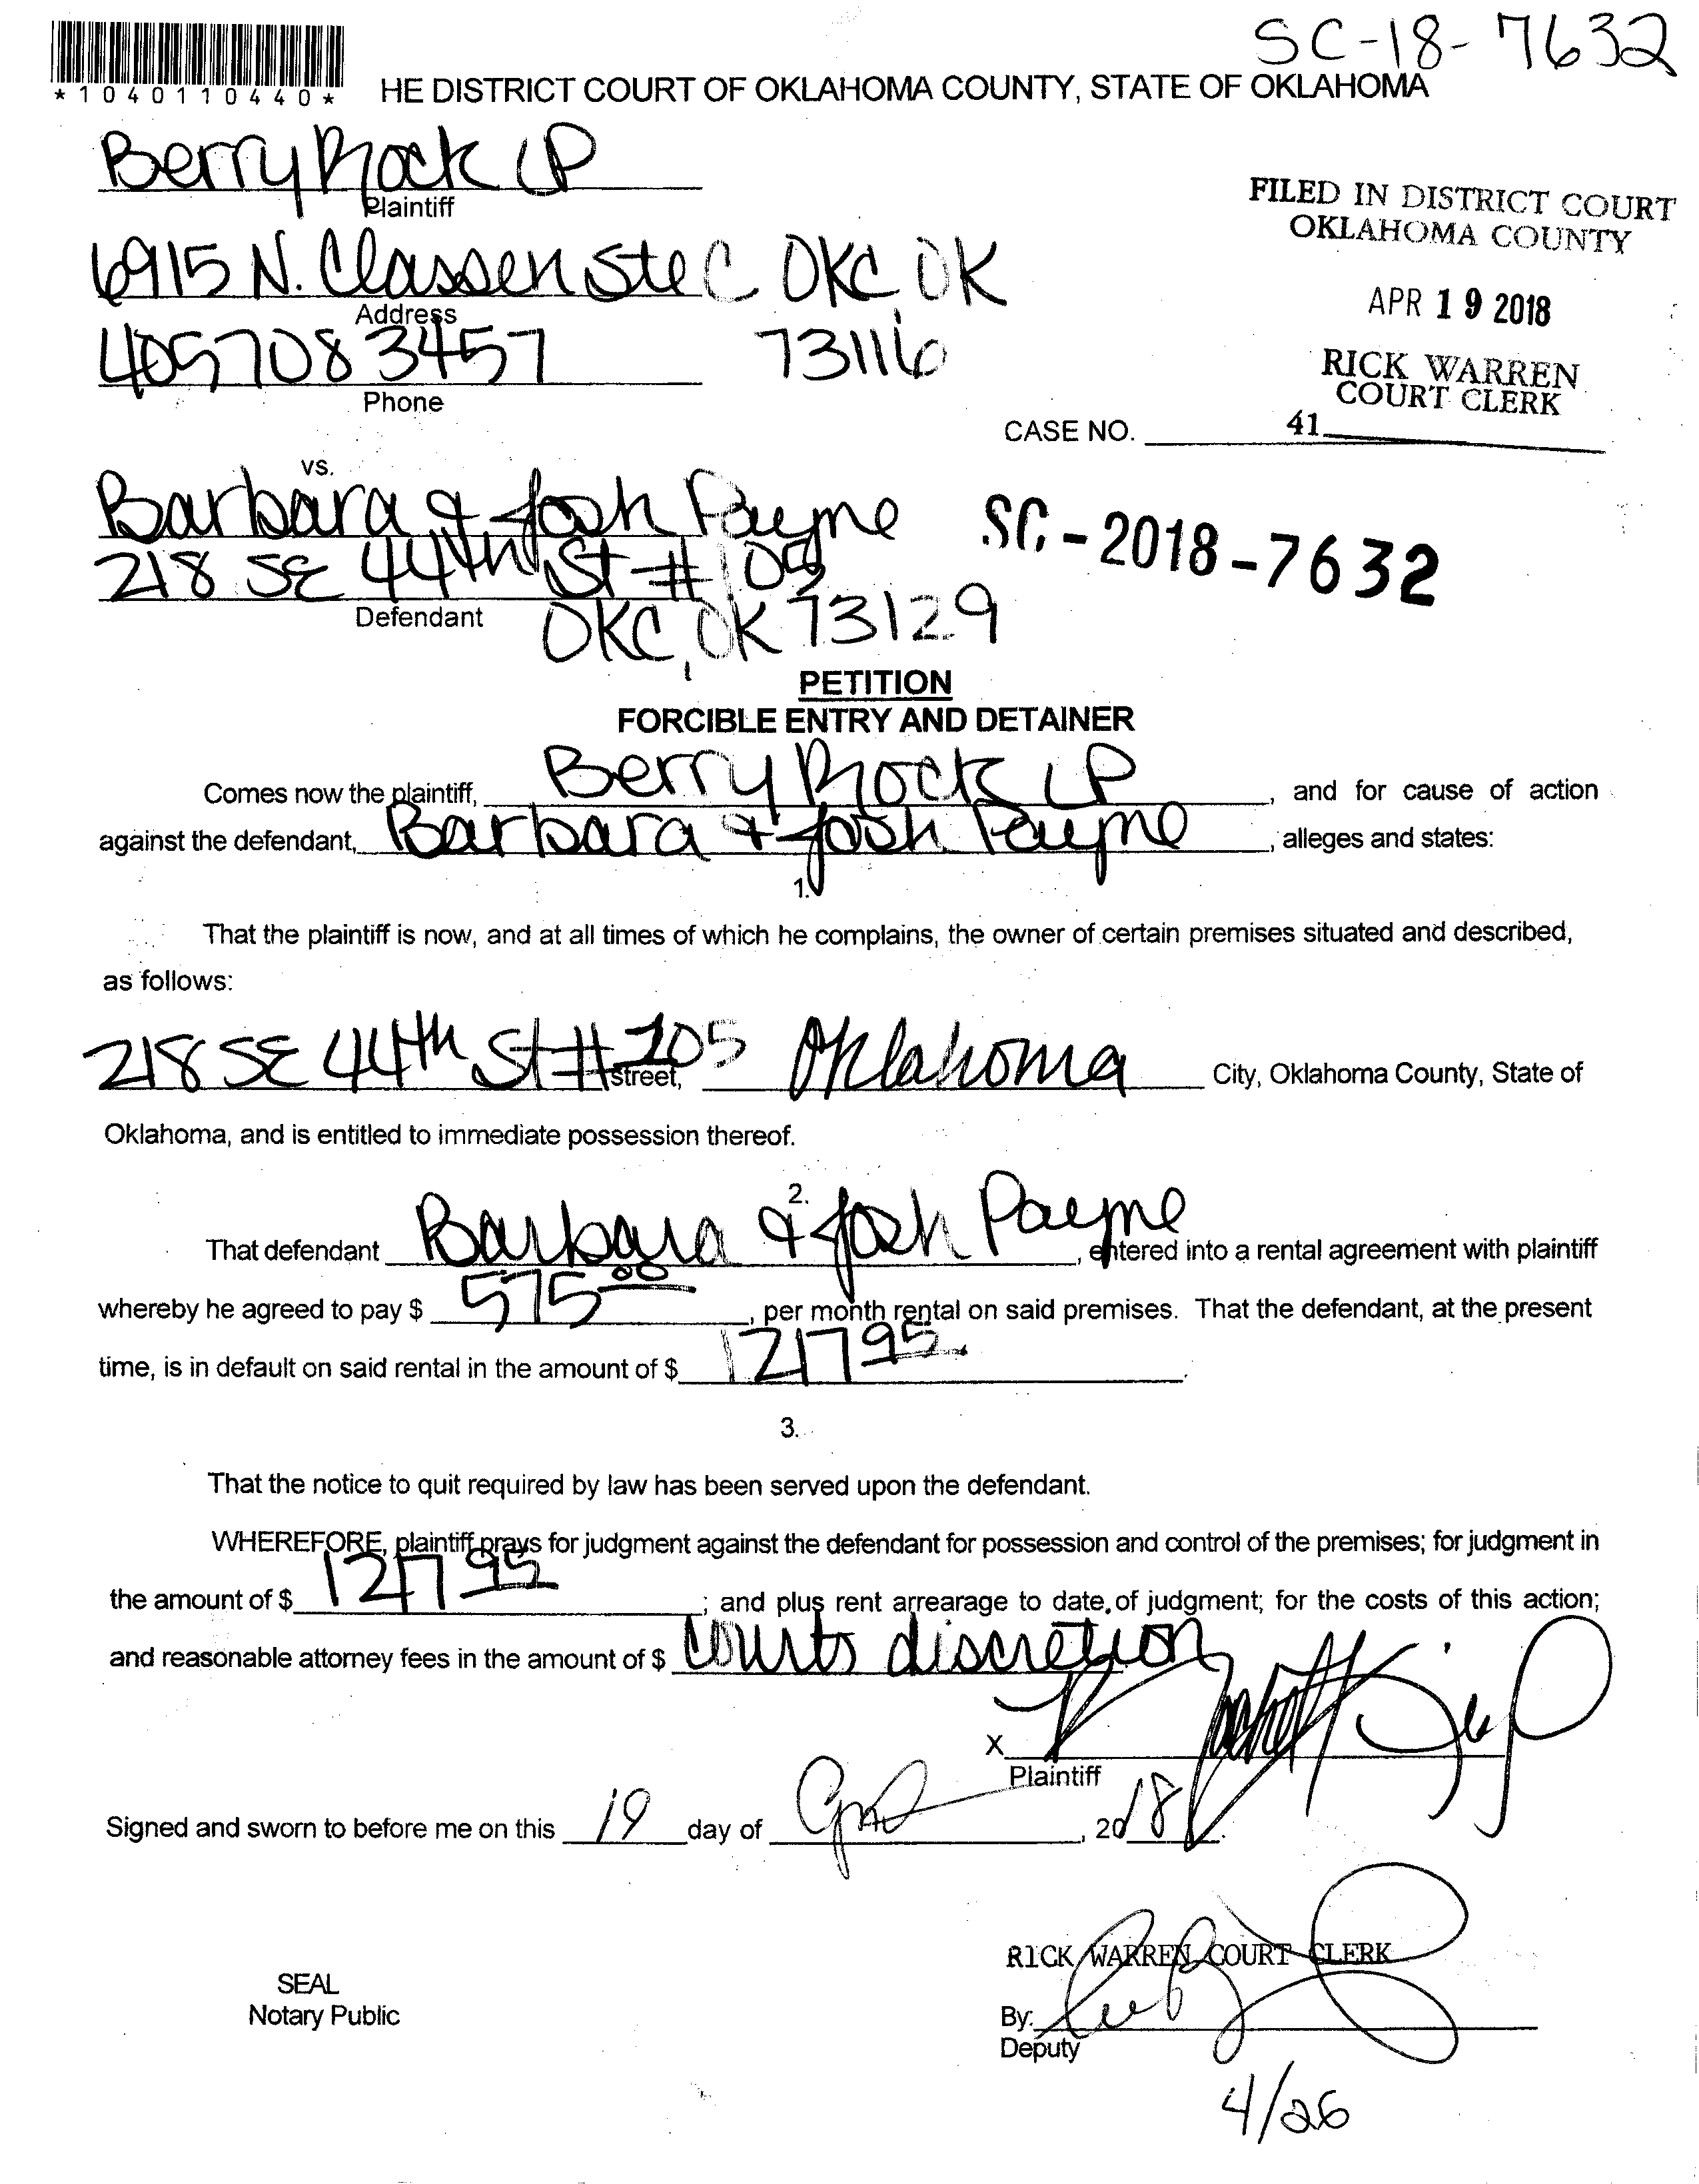 SC-18-7632
*1040110440*
HE DISTRICT COURT OF OKLAHOMA COUNTY, STATE OF OKLAHOMA
Berry Rock LP
Plaintiff
FILED IN DISTRICT COURT
OKLAHOMA COUNTY
6915 N. Classen Ste C OKC, OK
Address
APR 19 2018
4057083457 73116
Phone
RICK WARREN
COURT CLERK
CASE NO. 41
vs.
Barbara & Josh Payne
SC-2018-7632
218 SE 44th St #
Defendant
OKC, OK 73129
PETITION
FORCIBLE ENTRY AND DETAINER
Comes now the plaintiff, Berry Rock LP, and for cause of action
against the defendant, Barbara & Josh Payne, alleges and states:
1.
That the plaintiff is now, and at all times of which he complains, the owner of certain premises situated and described,
as follows:
218 SE 44th St # street, Oklahoma City, Oklahoma County, State of
Oklahoma, and is entitled to immediate possession thereof.
2.
That defendant Barbara & Josh Payne, entered into a rental agreement with plaintiff
whereby he agreed to pay $ 575 00, per month rental on said premises. That the defendant, at the present
time, is in default on said rental in the amount of $ 1217 95.
3.
That the notice to quit required by law has been served upon the defendant.
WHEREFORE, plaintiff prays for judgment against the defendant for possession and control of the premises; for judgment in
the amount of $ 1217 95; and plus rent arrearage to date of judgment; for the costs of this action;
and reasonable attorney fees in the amount of $ courts discretion
X
Plaintiff
Signed and sworn to before me on this 19 day of , 2018.
RICK WARREN COURT CLERK
SEAL
Notary Public
By:
Deputy
4/26